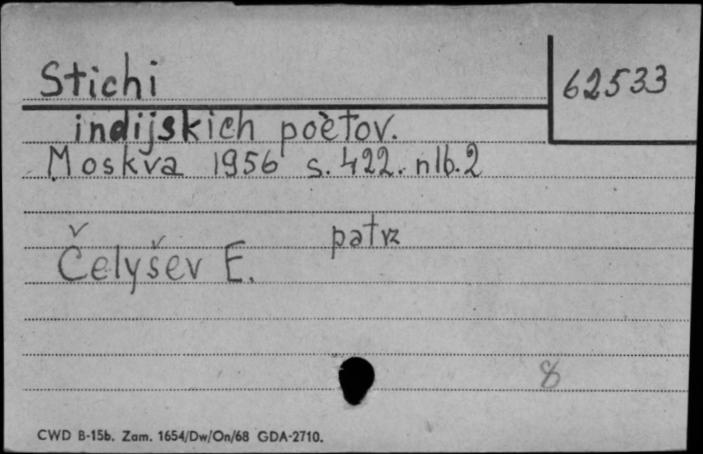 Stichi
62533
indijskich poètov.
Moskva 1956 s. 422. nlb. 2
patrz
Čelyšev E.
8
CWD B-15b. Zam. 1654/Dw/On/68 GDA-2710.